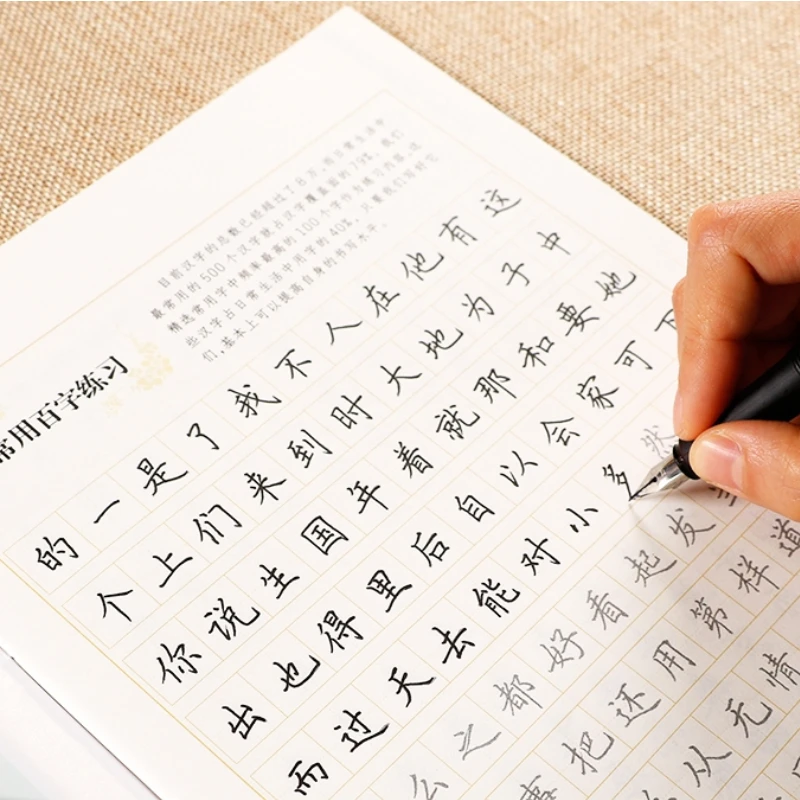 目前汉字的总数已经超过了8万,而日常生活中
最常用的500个汉字将占汉字覆盖面的79%,我们
精选常用字中频率最高的100个字作为练习内容,这
些汉字占日常生活中用字的40%,只要我们写好它
们,基本上可以提高自身的书写水平。
常用百字练习
的一是了我不人在他有这
个上们来到时大地为子中
你说生国年着就那和要她
出也得里后自以会家可下
而过天去能对小多然
么之都好看起发
事把还用第样道
从无情